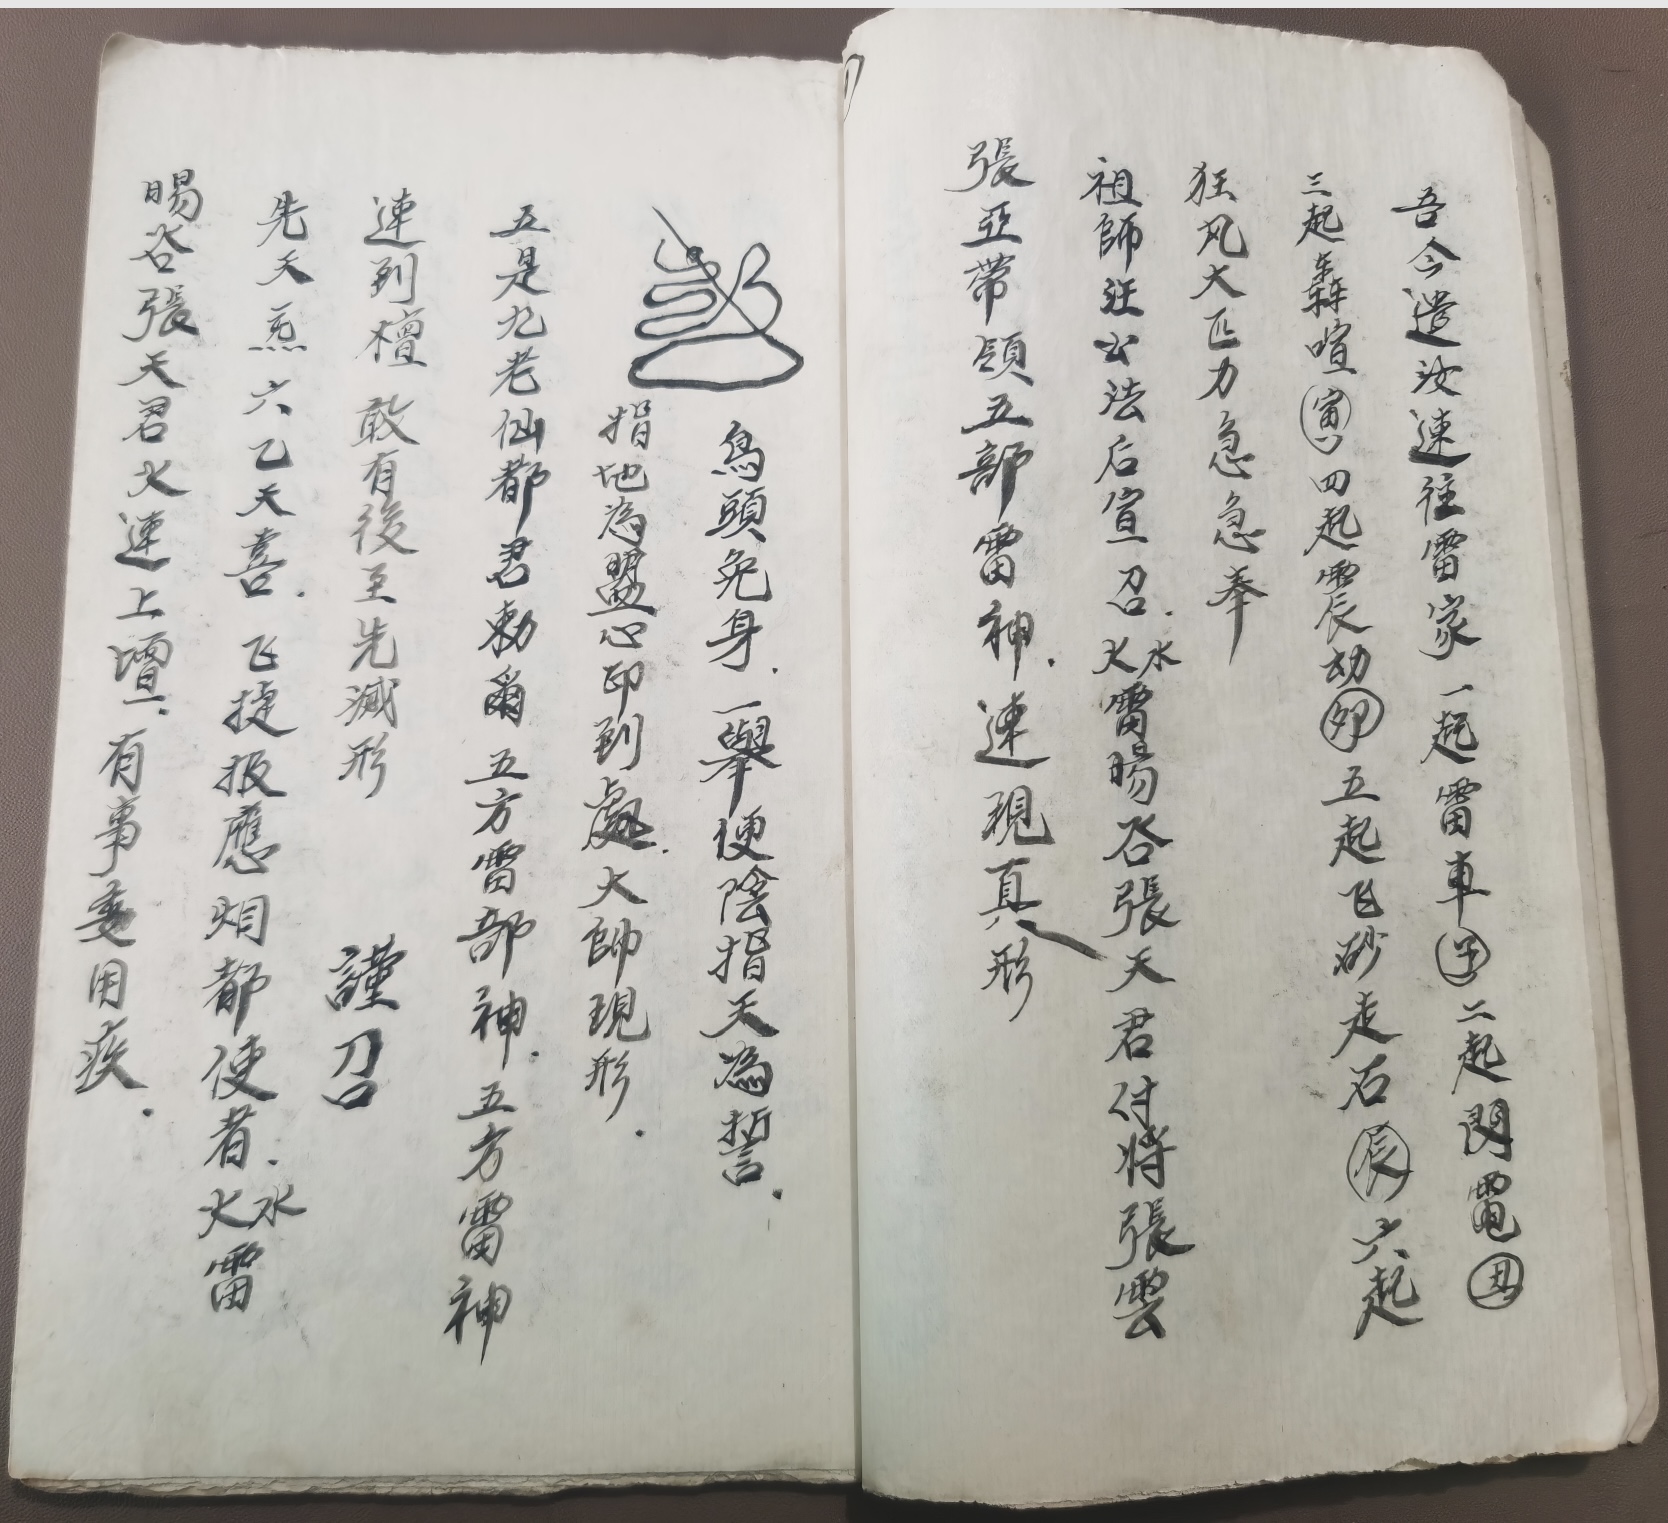 吾今遣汝速往雷家一起雷車子二起閃電丑
三起轟喧寅四起震劫卯五起飞砂走石辰六起
狂风大匹力急急奉
祖師汪公法后宣召水火雷暘谷張天君付将張雲
張亞帶領五部雷神速現真形
鳥頭免身一舉便陰指天為誓
指地為盟心印到處大帥現形
五是九老仙都君勅爾五方雷部神五方雷神
連到檀敢有後至先滅形 謹召
先天炁六乙天喜飞捷报應烟都使者水火雷
暘谷張天君火連上壇有事委用疾